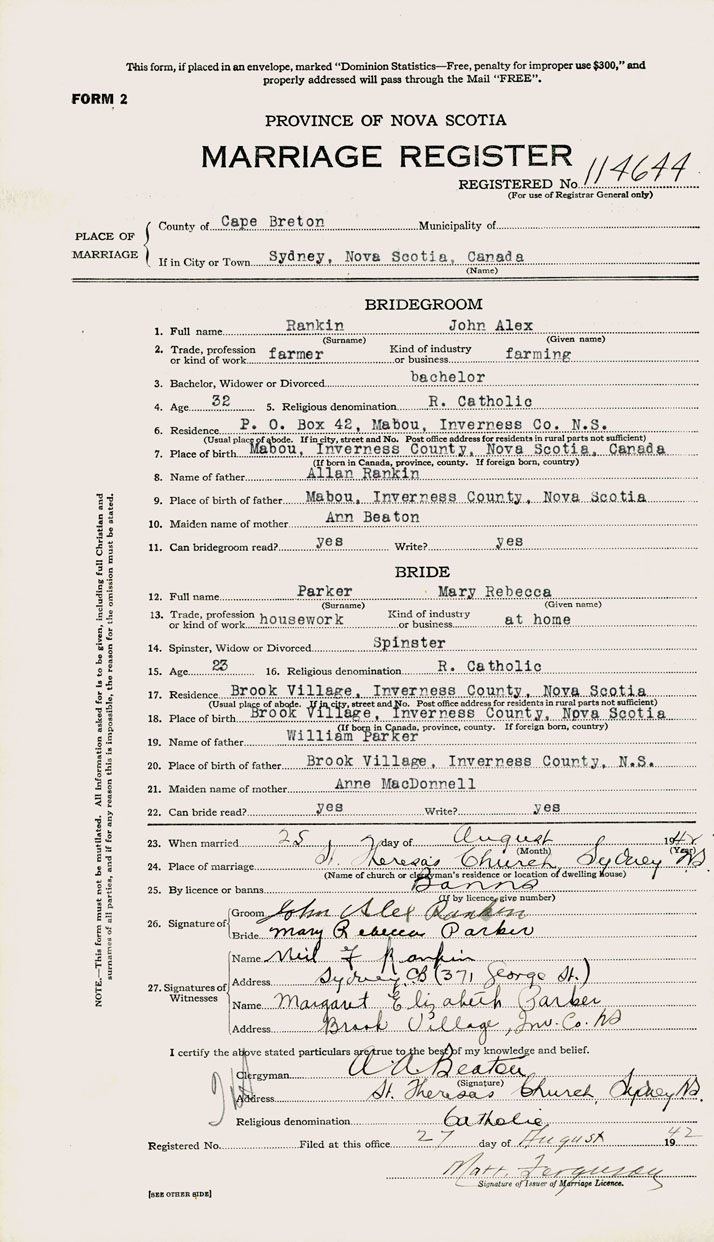 This form, if placed in an envelope, marked "Dominion Statistics—Free, penalty for improper use $300," and
properly addressed will pass through the Mail "FREE".
FORM 2
PROVINCE OF NOVA SCOTIA
MARRIAGE REGISTER
REGISTERED No. 114644
(For use of Registrar General only)
PLACE OF MARRIAGE
County of Cape Breton Municipality of
If in City or Town Sydney, Nova Scotia, Canada
(Name)
BRIDEGROOM
1. Full name Rankin John Alex
(Surname) (Given name)
2. Trade, profession or kind of work farmer Kind of industry or business farming
3. Bachelor, Widower or Divorced bachelor
4. Age 32 5. Religious denomination R. Catholic
6. Residence P. O. Box 42, Mabou, Inverness Co. N.S.
(Usual place of abode. If in city, street and No. Post office address for residents in rural parts not sufficient)
7. Place of birth Mabou, Inverness County, Nova Scotia, Canada
(If born in Canada, province, county. If foreign born, country)
8. Name of father Allan Rankin
9. Place of birth of father Mabou, Inverness County, Nova Scotia
10. Maiden name of mother Ann Beaton
11. Can bridegroom read? yes Write? yes
BRIDE
12. Full name Parker Mary Rebecca
(Surname) (Given name)
13. Trade, profession or kind of work housework Kind of industry or business at home
14. Spinster, Widow or Divorced Spinster
15. Age 23 16. Religious denomination R. Catholic
17. Residence Brook Village, Inverness County, Nova Scotia
(Usual place of abode. If in city, street and No. Post office address for residents in rural parts not sufficient)
18. Place of birth Brook Village, Inverness County, Nova Scotia
(If born in Canada, province, county. If foreign born, country)
19. Name of father William Parker
20. Place of birth of father Brook Village, Inverness County, N.S.
21. Maiden name of mother Anne MacDonnell
22. Can bride read? yes Write? yes
23. When married 25 day of August 1942
(Month) (Year)
24. Place of marriage St. Theresa's Church, Sydney NS.
(Name of church or clergyman's residence or location of dwelling house)
25. By licence or banns Banns
(If by licence, give number)
26. Signature of
Groom John Alex Rankin
Bride Mary Rebecca Parker
27. Signatures of Witnesses
Name Neil F Rankin
Address Sydney CB (371 George St.)
Name Margaret Elizabeth Parker
Address Brook Village, Inv. Co. NS
I certify the above stated particulars are true to the best of my knowledge and belief.
Clergyman A A Beaton
(Signature)
Address St. Theresa's Church, Sydney NS.
Religious denomination Catholic
Registered No. Filed at this office 27 day of August 1942
Matt. Ferguson
Signature of Issuer of Marriage Licence.
[SEE OTHER SIDE]
NOTE.—This form must not be mutilated. All Information asked for is to be given, including full Christian and
surnames of all parties, and if for any reason this is impossible, the reason for the omission must be stated.